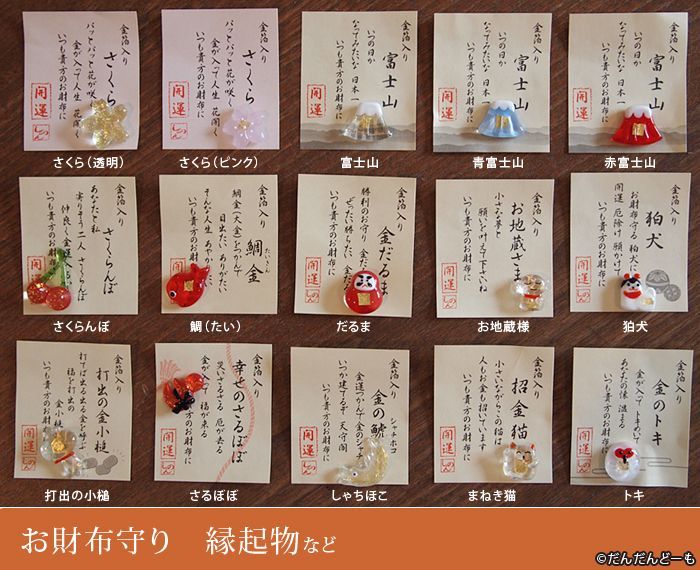 金箔入り
さくら
パッとパッと花が咲く
金が入って人生 花開く
いつも貴方のお財布に
開運
さくら（透明）
金箔入り
さくら
パッとパッと花が咲く
金が入って人生 花開く
いつも貴方のお財布に
開運
さくら（ピンク）
金箔入り
富士山
いつの日か
なってみたいな 日本一
いつも貴方のお財布に
開運
富士山
金箔入り
富士山
いつの日か
なってみたいな 日本一
いつも貴方のお財布に
開運
青富士山
金箔入り
富士山
いつの日か
なってみたいな 日本一
いつも貴方のお財布に
開運
赤富士山
金箔入り
さくらんぼ
あなたと私
寄りそう二人 さくらんぼ
仲良く金運
いつも貴方のお財布に
開運
さくらんぼ
金箔入り
鯛金
たいきん
鯛金（大金）をつかんで
目出たい、ありがたい
そんな人生 あやか
いつも貴方のお財布に
開運
鯛（たい）
金箔入り
金だるま
勝利のお守り 金だ
ぜったい勝ちたい
いつも貴方のお財布に
開運
だるま
金箔入り
お地蔵さま
小さな夢と
願いを叶えて下さいね
いつも貴方のお財布に
開運
お地蔵様
金箔入り
狛犬
お財布守る 狛犬に
開運 厄除け 願かけて
いつも貴方のお財布に
開運
狛犬
金箔入り
打出の金小槌
打てば出る出る金を呼ぶ
福を打出の
金小槌
いつも貴方のお財布に
開運
打出の小槌
金箔入り
幸せのさるぼぼ
災いさるさる 厄が去る
金がはいって 福が来る
いつも貴方のお財布に
開運
さるぼぼ
金箔入り
金の鯱
シャチホコ
金運つかんで 金のシャチ
いつか建てるぞ 天守閣
いつも貴方のお財布に
開運
しゃちほこ
金箔入り
招金猫
小さいながらこの猫は
人もお金も招いています
いつも貴方のお財布に
開運
まねき猫
金箔入り
金のトキ
金が入ってトキめいて
あなたの懐 温まる
いつも貴方のお財布に
開運
トキ
お財布守り 縁起物など
©だんだんどーも